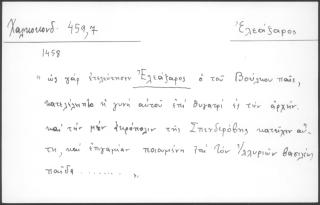 Χαλκοκονδ. 459,7 Ἐλεάζαρος
1458
" ὡς γὰρ ἐτελεύτησεν Ἐλεάζαρος ὁ τοῦ Βούλκου παῖς,
κατελέλειπτο ἡ γυνὴ αὐτοῦ ἐπὶ θυγατρὶ ἐς τὴν ἀρχήν.
καὶ τὴν μὲν ἀκρόπολιν τῆς Σπενδερόβης κατεῖχεν αὕ-
τη, καὶ ἐπιγαμίαν ποιουμένη ἐπὶ τὸν Ἰλλυριῶν βασιλέως
παῖδα ........ ,,